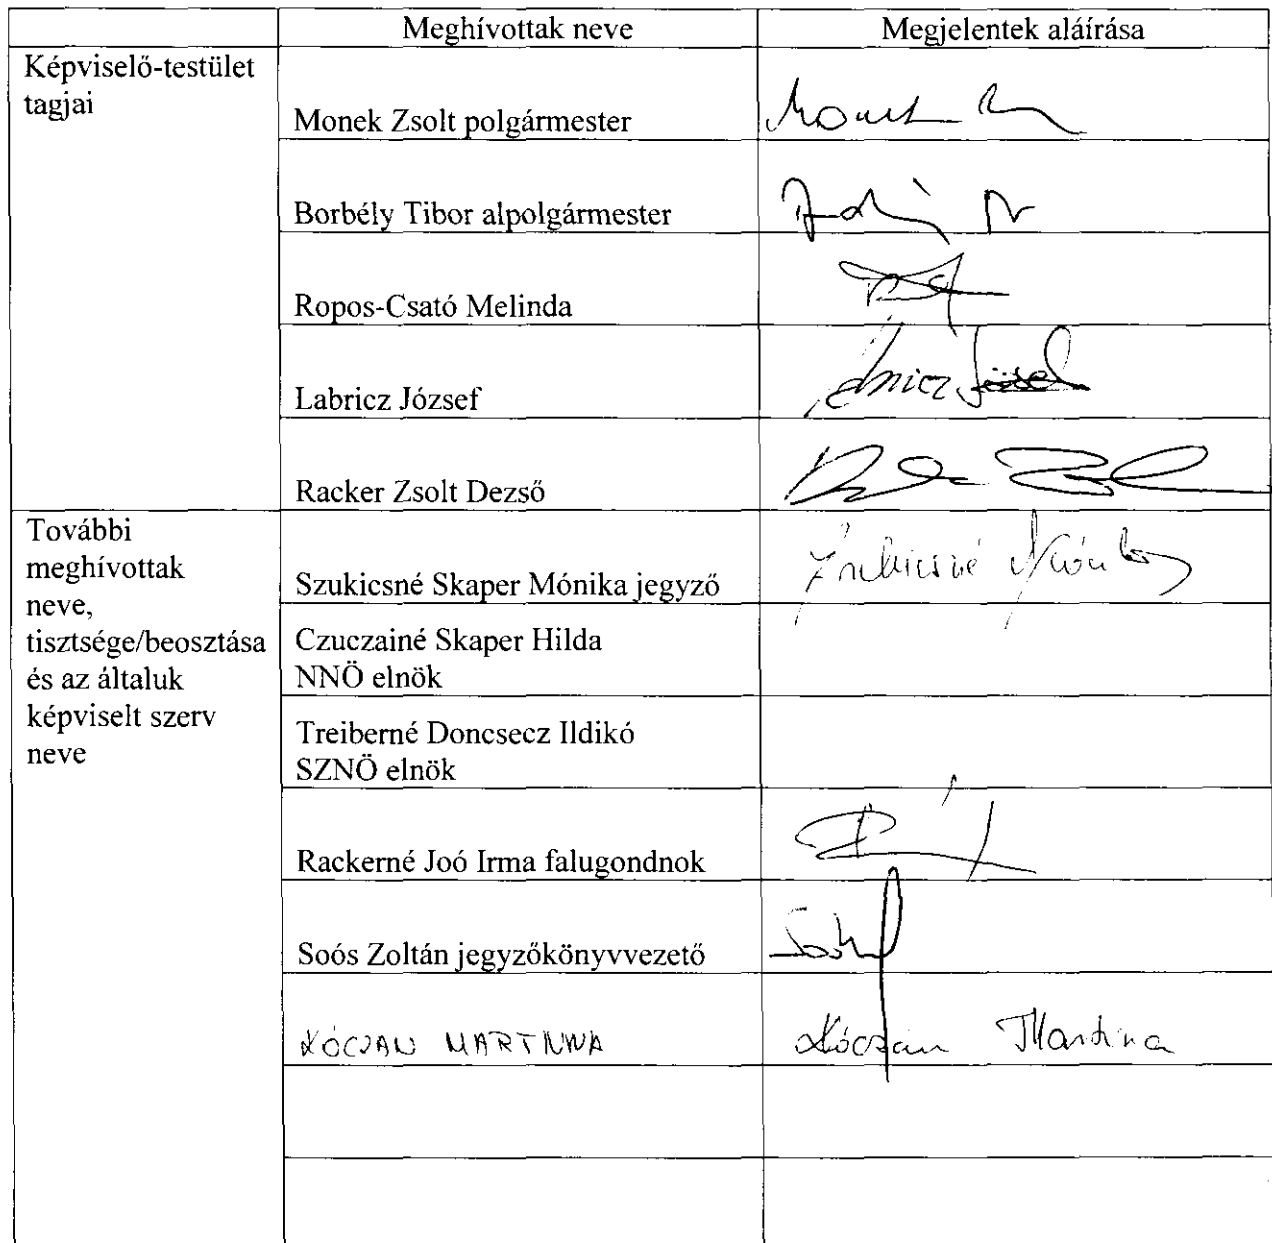 Meghívottak neve
Megjelentek aláírása
Képviselő-testület
tagjai
Monek Zsolt polgármester
Borbély Tibor alpolgármester
Ropos-Csató Melinda
Labricz József
József
Racker Zsolt Dezső
További
meghívottak
neve,
tisztsége/beosztása
és az általuk
képviselt szerv
neve
Szukicsné Skaper Mónika jegyző
Szukicsné
Czuczainé Skaper Hilda
NNÖ elnök
Treiberné Doncsecz Ildikó
SZNÖ elnök
Rackerné Joó Irma falugondnok
Soós Zoltán jegyzőkönyvvezető
KÓCZÁN MARTINA
Kóczán Martina